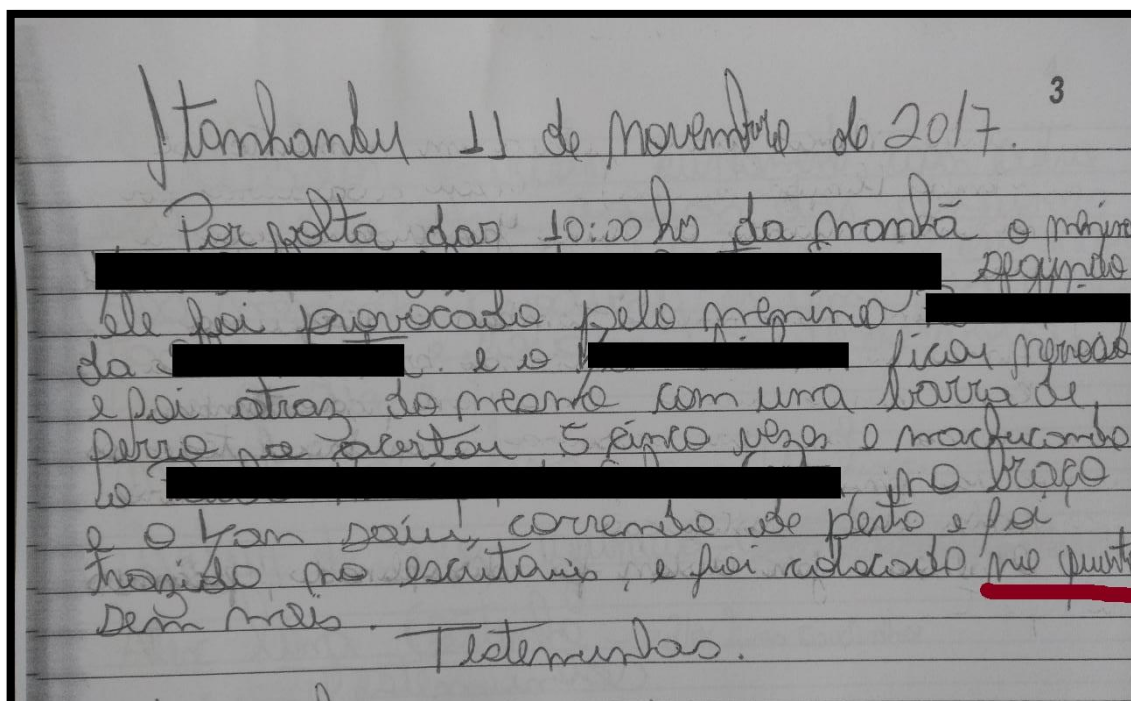 3
Itanhandu 11 de novembro de 2017.
Por volta das 10:00 hs da manhã o menino
segundo
ele foi provocado pelo menino
da e o ficou nervoso
e foi atraz do mesmo com uma barra de
ferro e acertou 5 cinco vezes e machucando
no braço
e o saiu correndo de perto e foi
trazido no escritorio e foi colocado no quarto
sem mais.
Testemunhas.